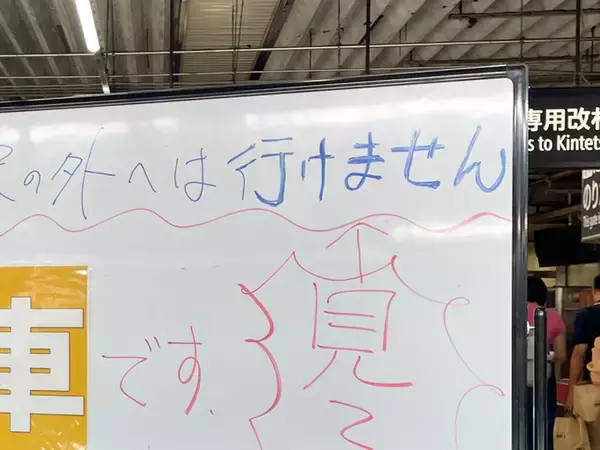 の外へは行けません
車
です.
見
専用改
s to Kintets
のり